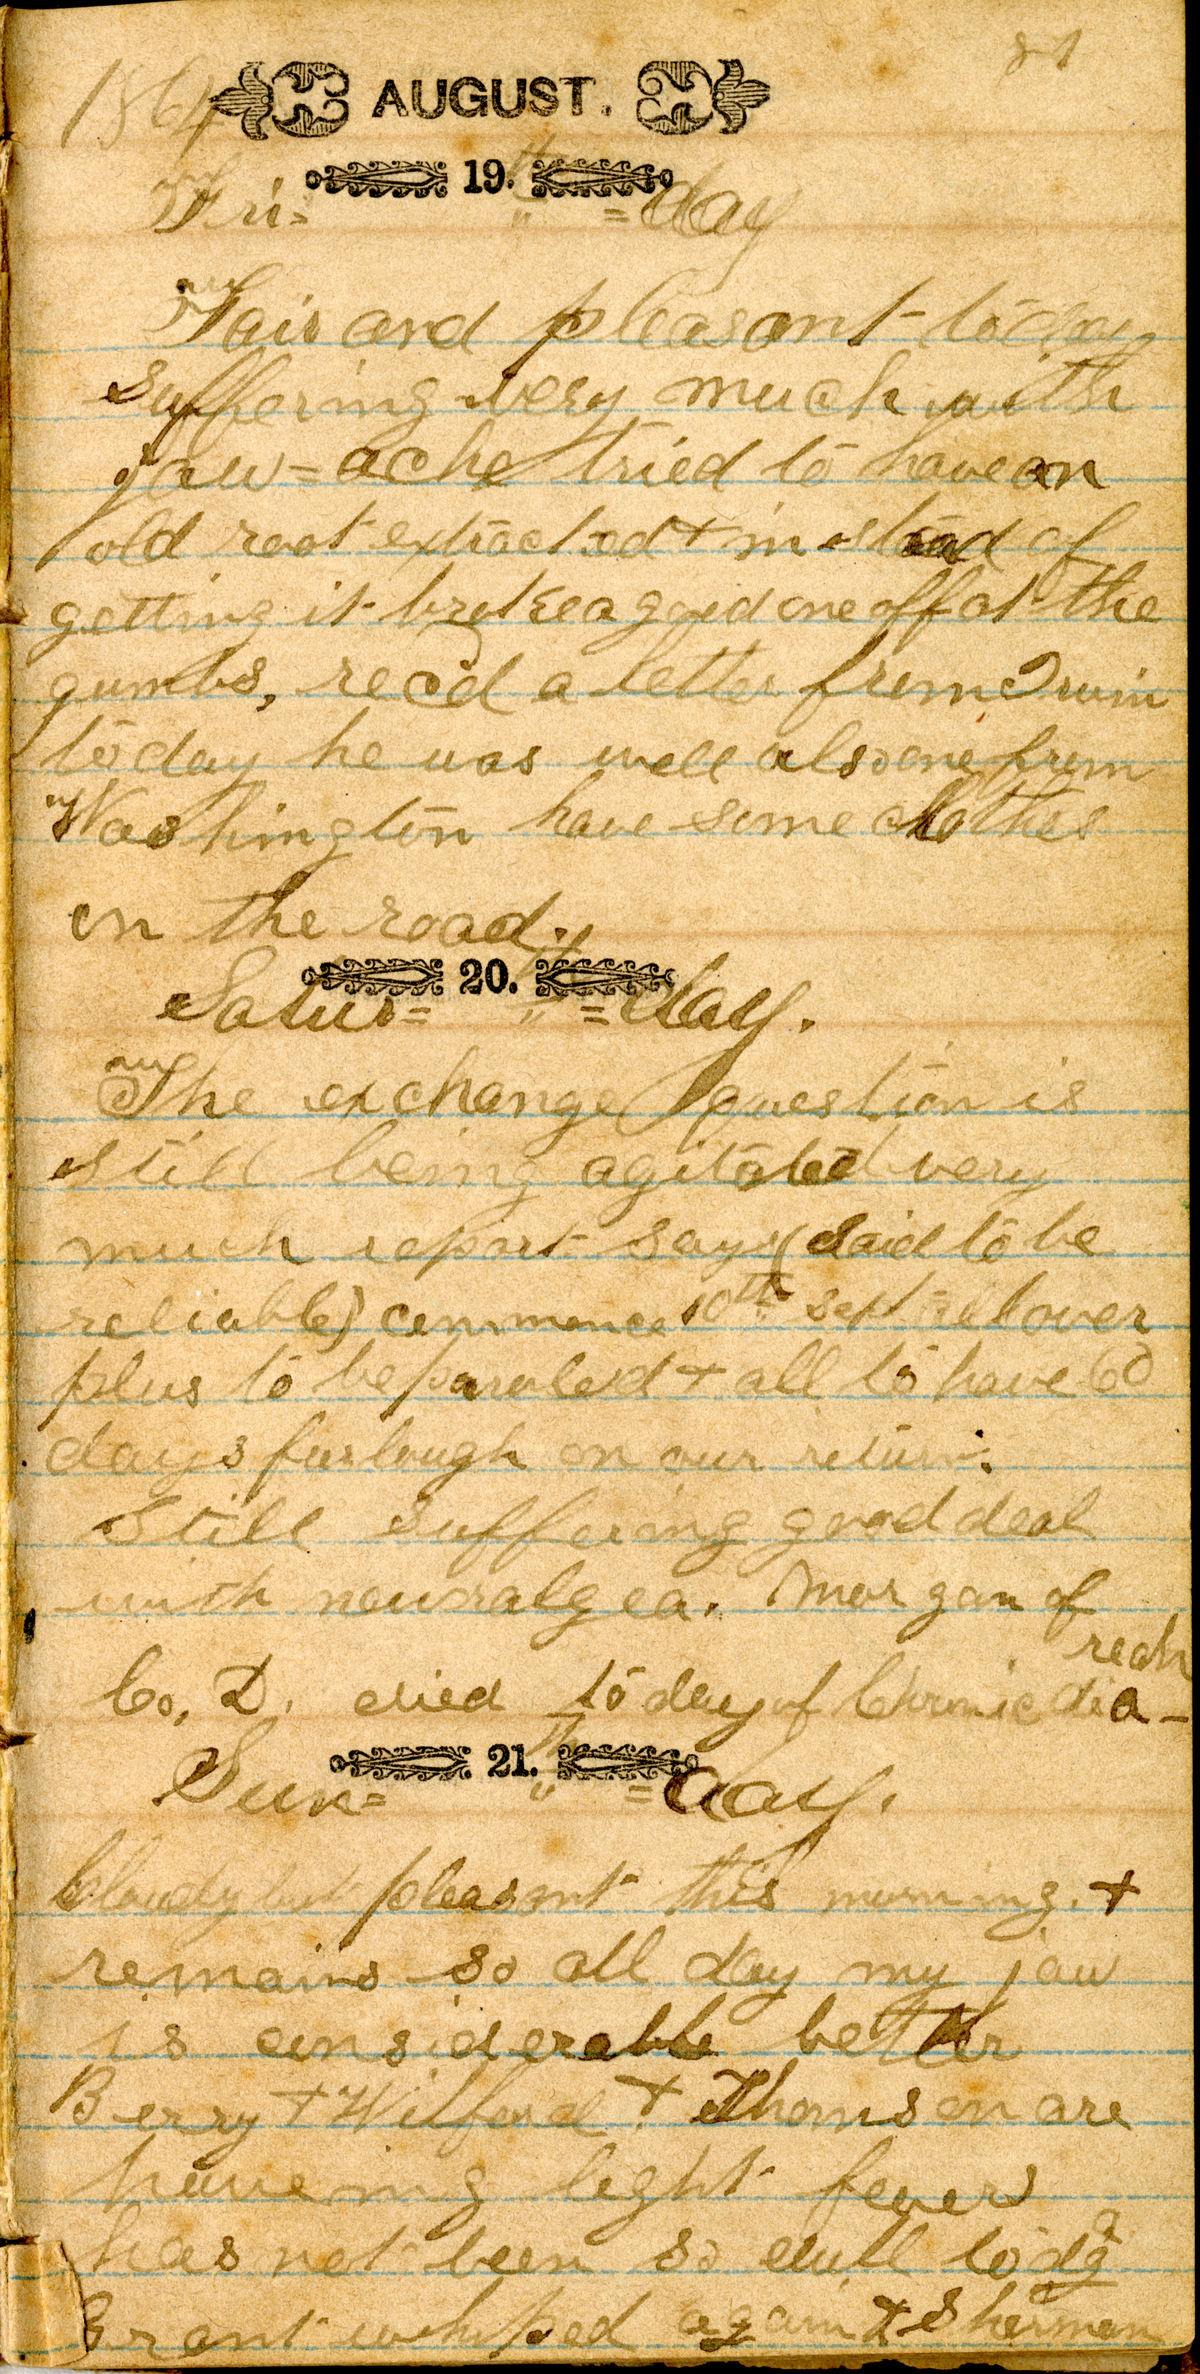 81
1864 AUGUST.
19.th
Fri= " =day
Fair and pleasant today
suffering very much with
jaw=ache tried to have an
old root extracted + instead of
getting it broke a good one off at the
gumbs, recd a letter from Irwin
today he was well also one from
Washington have some clothes
on the road.
20.th
Satur= " =day.
The exchange question is
still being agitated very
much report says (said to be
reliable) commence 10th Sept all over
plus to be paroled + all to have 60
days furlough on our return.
Still suffering good deal
with neuralgea. Morgan of
Co, D. died today of Chronic dia-
reah
21.th
Sun= " =day.
Cloudy but pleasant this morning. +
remains so all day my jaw
is considerable better
Berry + Wilford + Thomson are
haveing light fever
has not been so dull today
Grant whiped again + Sherman